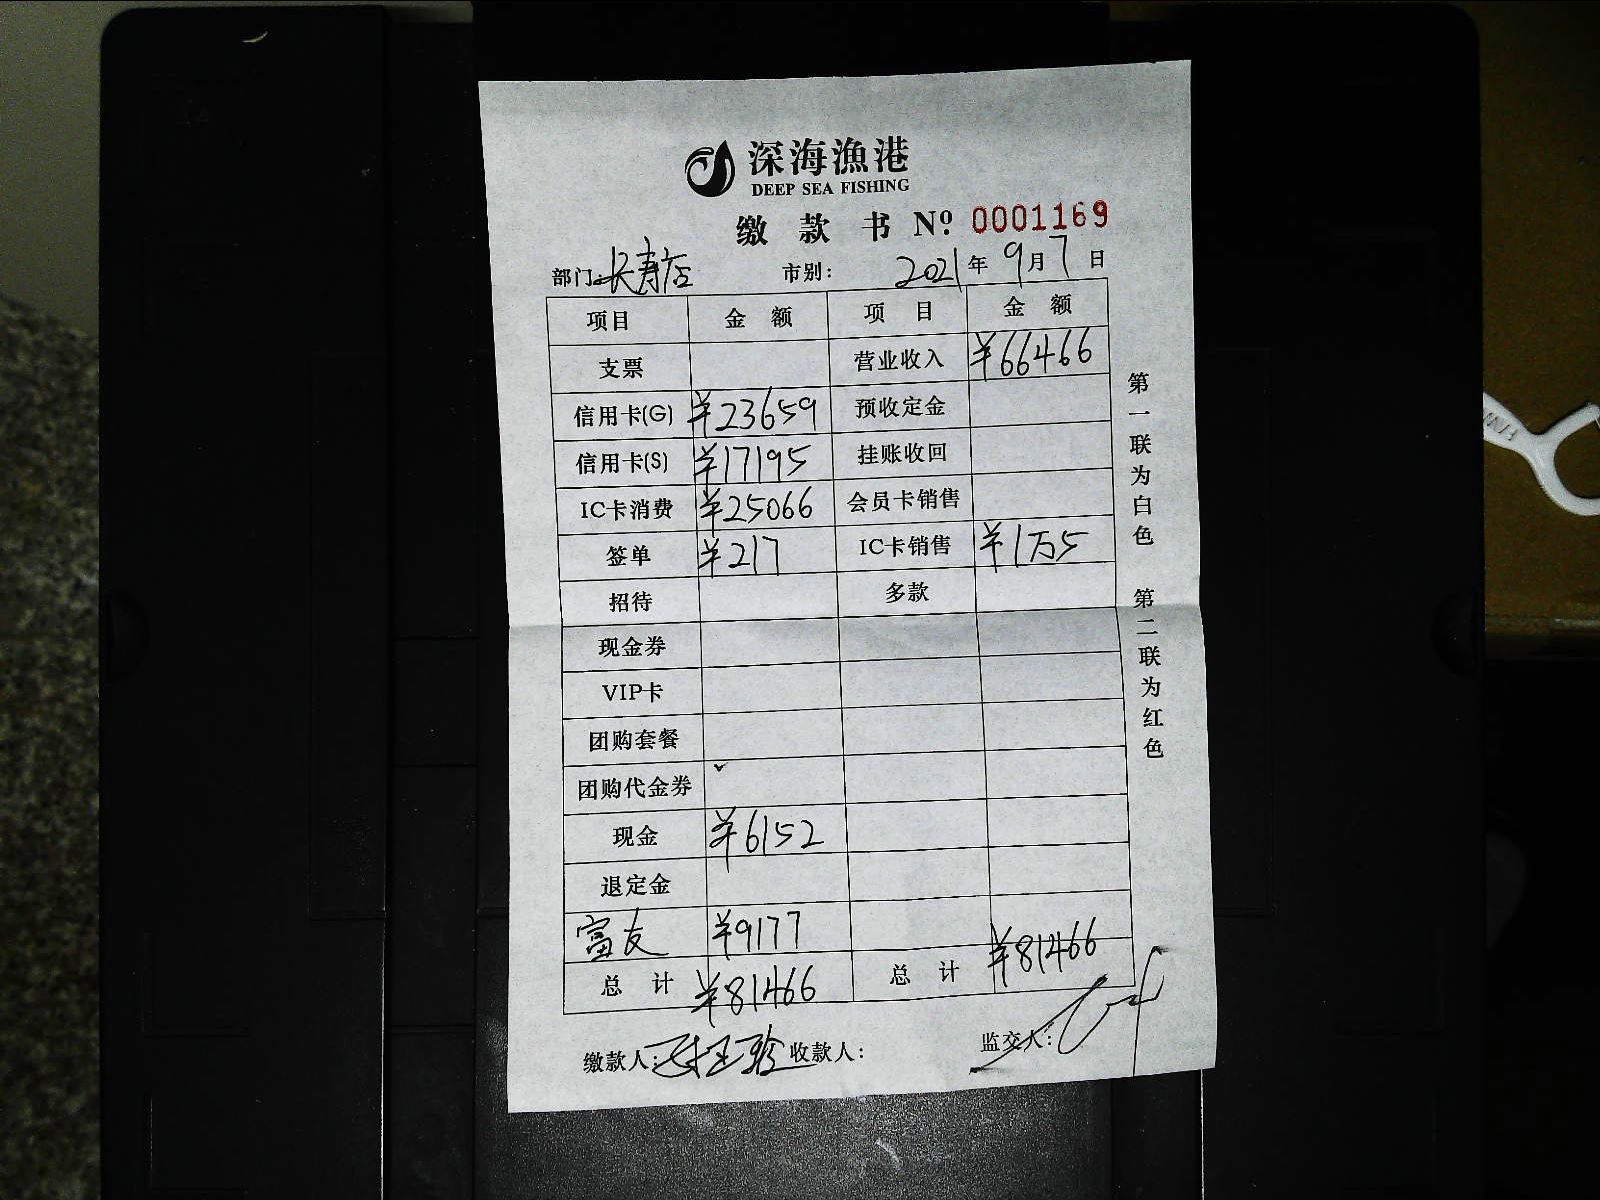 深海漁港
DEEP SEA FISHING
缴款书 Nº: 0001169
部门: 长寿店 市别: 2021年9月7日
项目 金额 项目 金额
支票 营业收入 ¥66466
信用卡(G) ¥23659 预收定金
信用卡(S) ¥17195 挂账收回
IC卡消费 ¥25066 会员卡销售
签单 ¥217 IC卡销售 ¥1万5
招待 多款
现金券
VIP卡
团购套餐
团购代金券
现金 ¥6152
退定金
富友 ¥9177
总计 ¥81466 总计 ¥81466
缴款人: 收款人: 监交人:
第一联为白色 第二联为红色